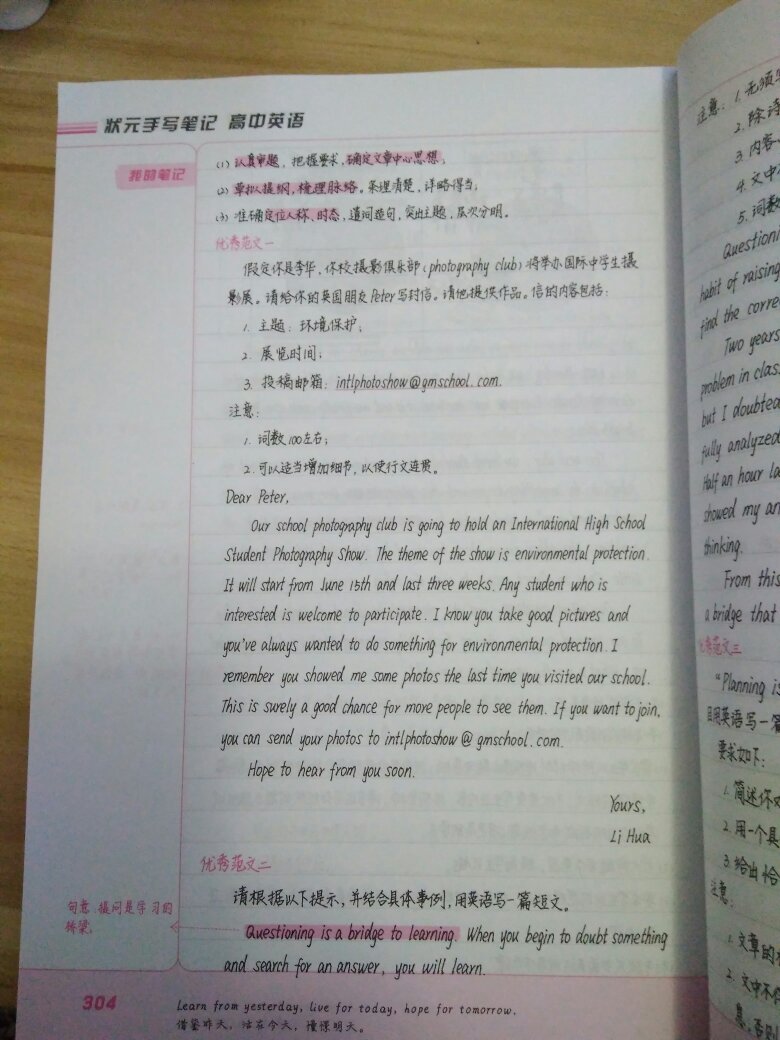 状元手写笔记 高中英语
我的笔记
(1) 认真审题，把握要求，确定文章中心思想；
(2) 草拟提纲，梳理脉络。条理清楚，详略得当；
(3) 准确定位人称、时态，遣词造句，突出主题，层次分明。
优秀范文一
假定你是李华，你校摄影俱乐部(photography club)将举办国际中学生摄
影展。请给你的英国朋友Peter写封信。请他提供作品。信的内容包括：
1. 主题：环境保护；
2. 展览时间；
3. 投稿邮箱：intlphotoshow@gmschool.com.
注意：
1. 词数100左右；
2. 可以适当增加细节，以使行文连贯。
Dear Peter,
Our school photography club is going to hold an International High School
Student Photography Show. The theme of the show is environmental protection.
It will start from June 15th and last three weeks. Any student who is
interested is welcome to participate. I know you take good pictures and
you've always wanted to do something for environmental protection. I
remember you showed me some photos the last time you visited our school.
This is surely a good chance for more people to see them. If you want to join,
you can send your photos to intlphotoshow@gmschool.com.
Hope to hear from you soon.
Yours,
Li Hua
优秀范文二
请根据以下提示，并结合具体事例，用英语写一篇短文。
句意：提问是学习的
桥梁。
Questioning is a bridge to learning. When you begin to doubt something
and search for an answer, you will learn.
304
Learn from yesterday, live for today, hope for tomorrow.
借鉴昨天，活在今天，憧憬明天。
注意：1. 无须写
2. 除诗
3. 内容
4. 文中
5. 词数
Questioni
habit of raising
find the corre
Two years
problem in clas
but I doubted
fully analyzed
Half an hour la
showed my an
thinking.
From this
a bridge that
优秀范文三
"Planning is
目用英语写一篇
要求如下：
1. 简述你
2. 用一个具
3. 给出恰
注意：
1. 文章的
2. 文中不
息，否则